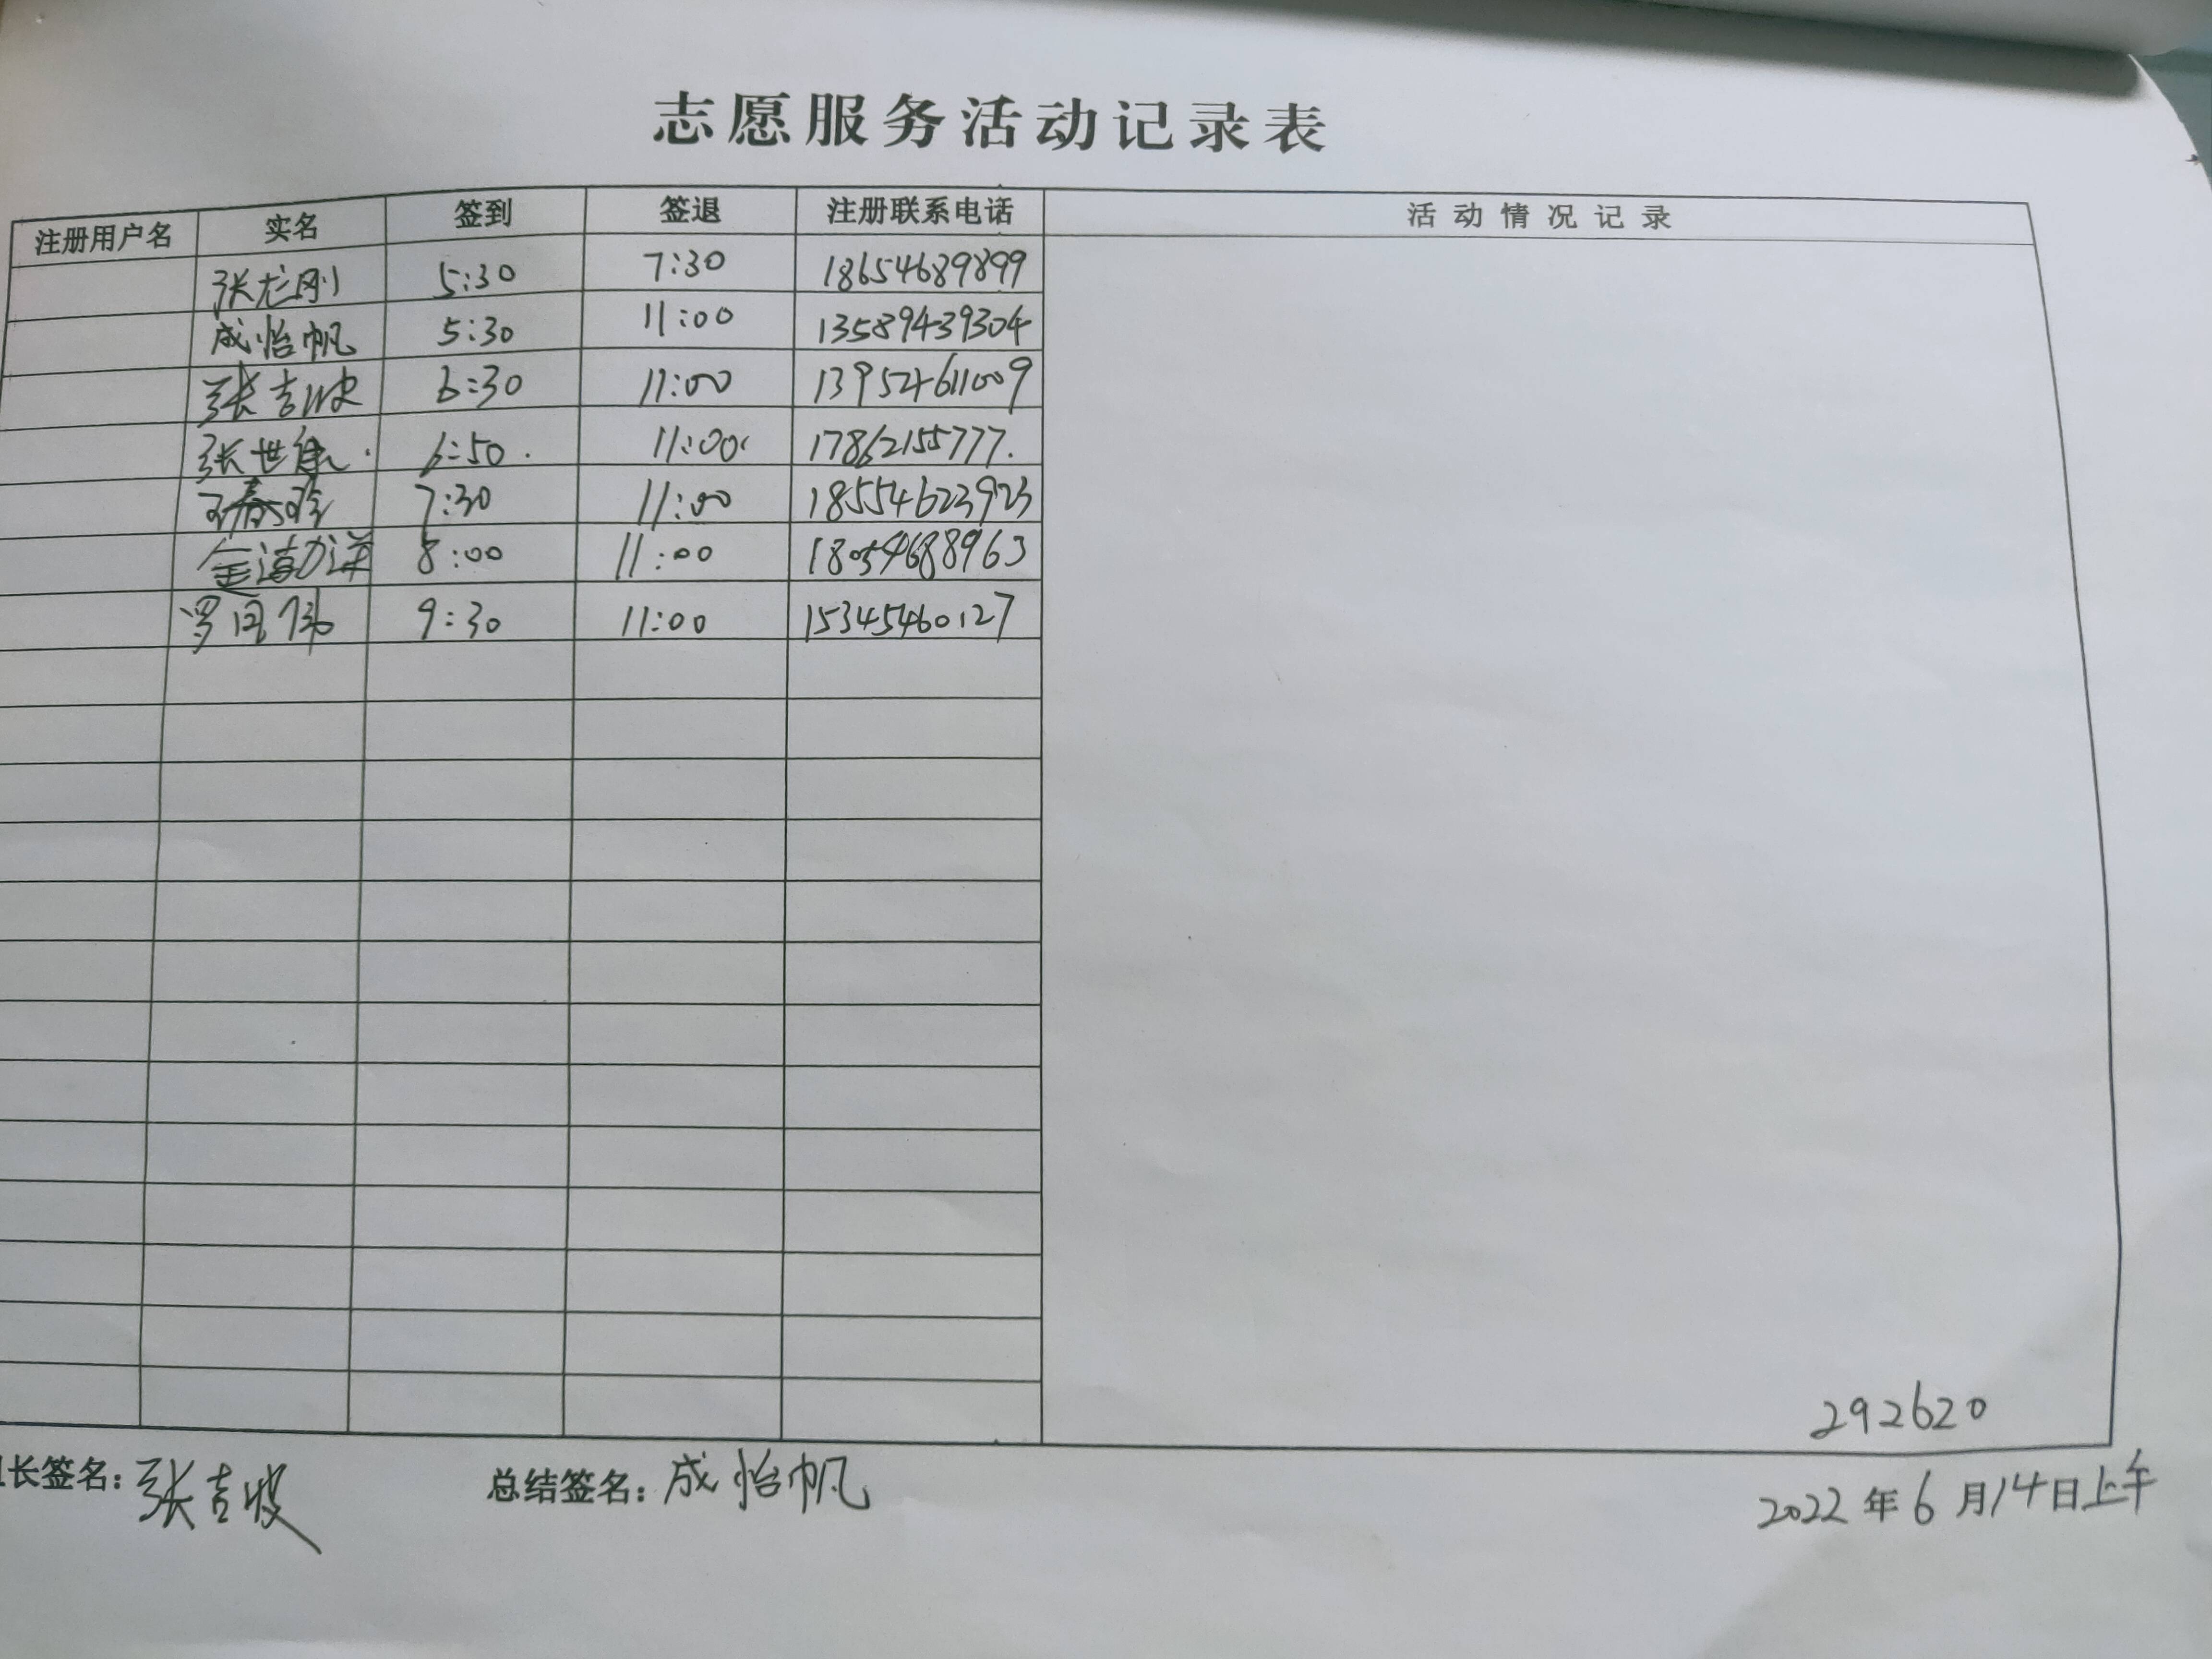 志愿服务活动记录表
注册用户名 实名 签到 签退 注册联系电话 活动情况记录
张龙刚 5:30 7:30 18654689899
成怡帆 5:30 11:00 13589439304
张吉波 6:30 11:00 13954611009
张世 6:50 11:00 17862155777.
7:30 11:00 18554623923
8:00 11:00 18054688963
罗 9:30 11:00 15345460127
292620
长签名: 张吉波 总结签名: 成怡帆 2022年6月14日上午